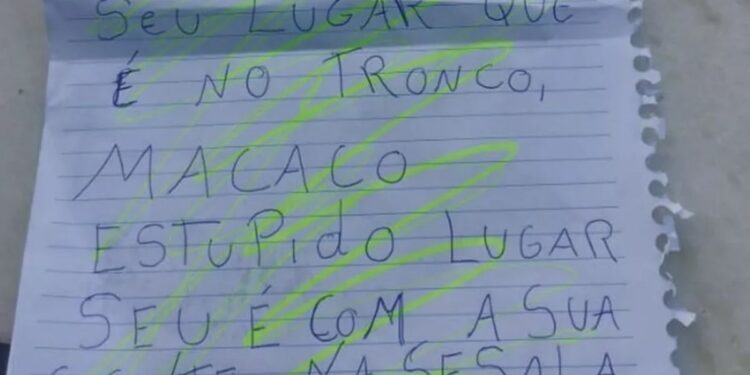 SEU LUGAR QUE
É NO TRONCO,
MACACO
ESTUPIDO LUGAR
SEU É COM A SUA
NA SESALA